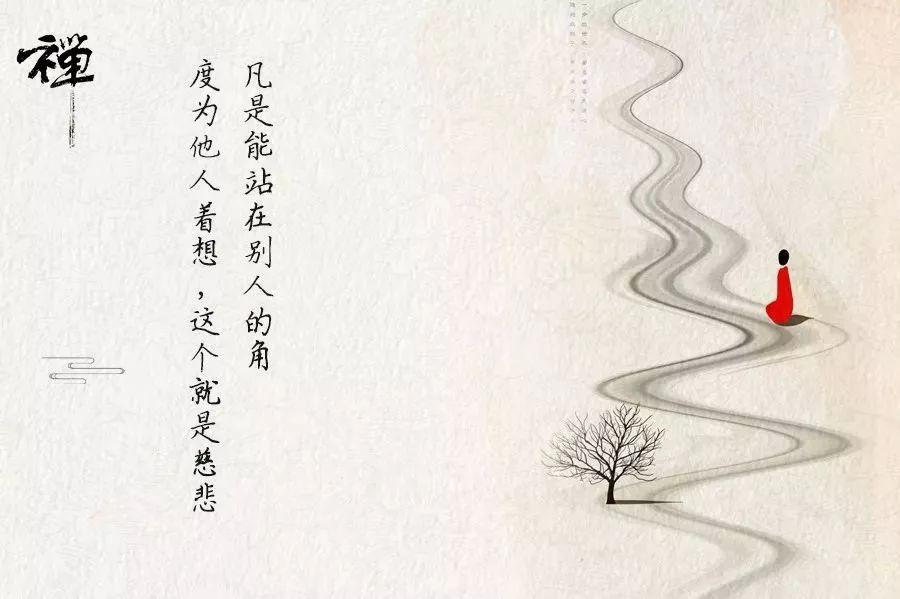 禅
凡是能站在别人的角
度为他人着想,这个就是慈悲